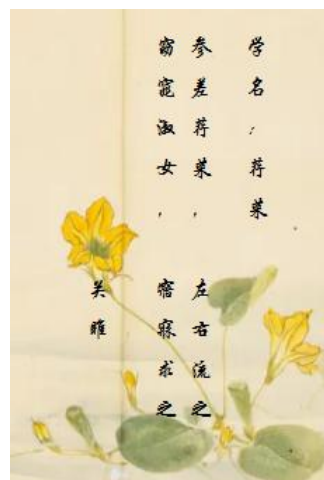 学名：荇菜
参差荇菜，左右流之
窈窕淑女，寤寐求之
关雎